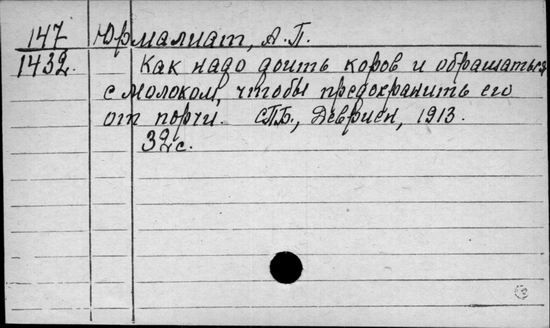 147 Юрмалиат, А.П.
1432. Как надо доить коров и обращаться
с молоком, чтобы предохранить его
от порчи. СПБ., Девриен, 1913.
32с.